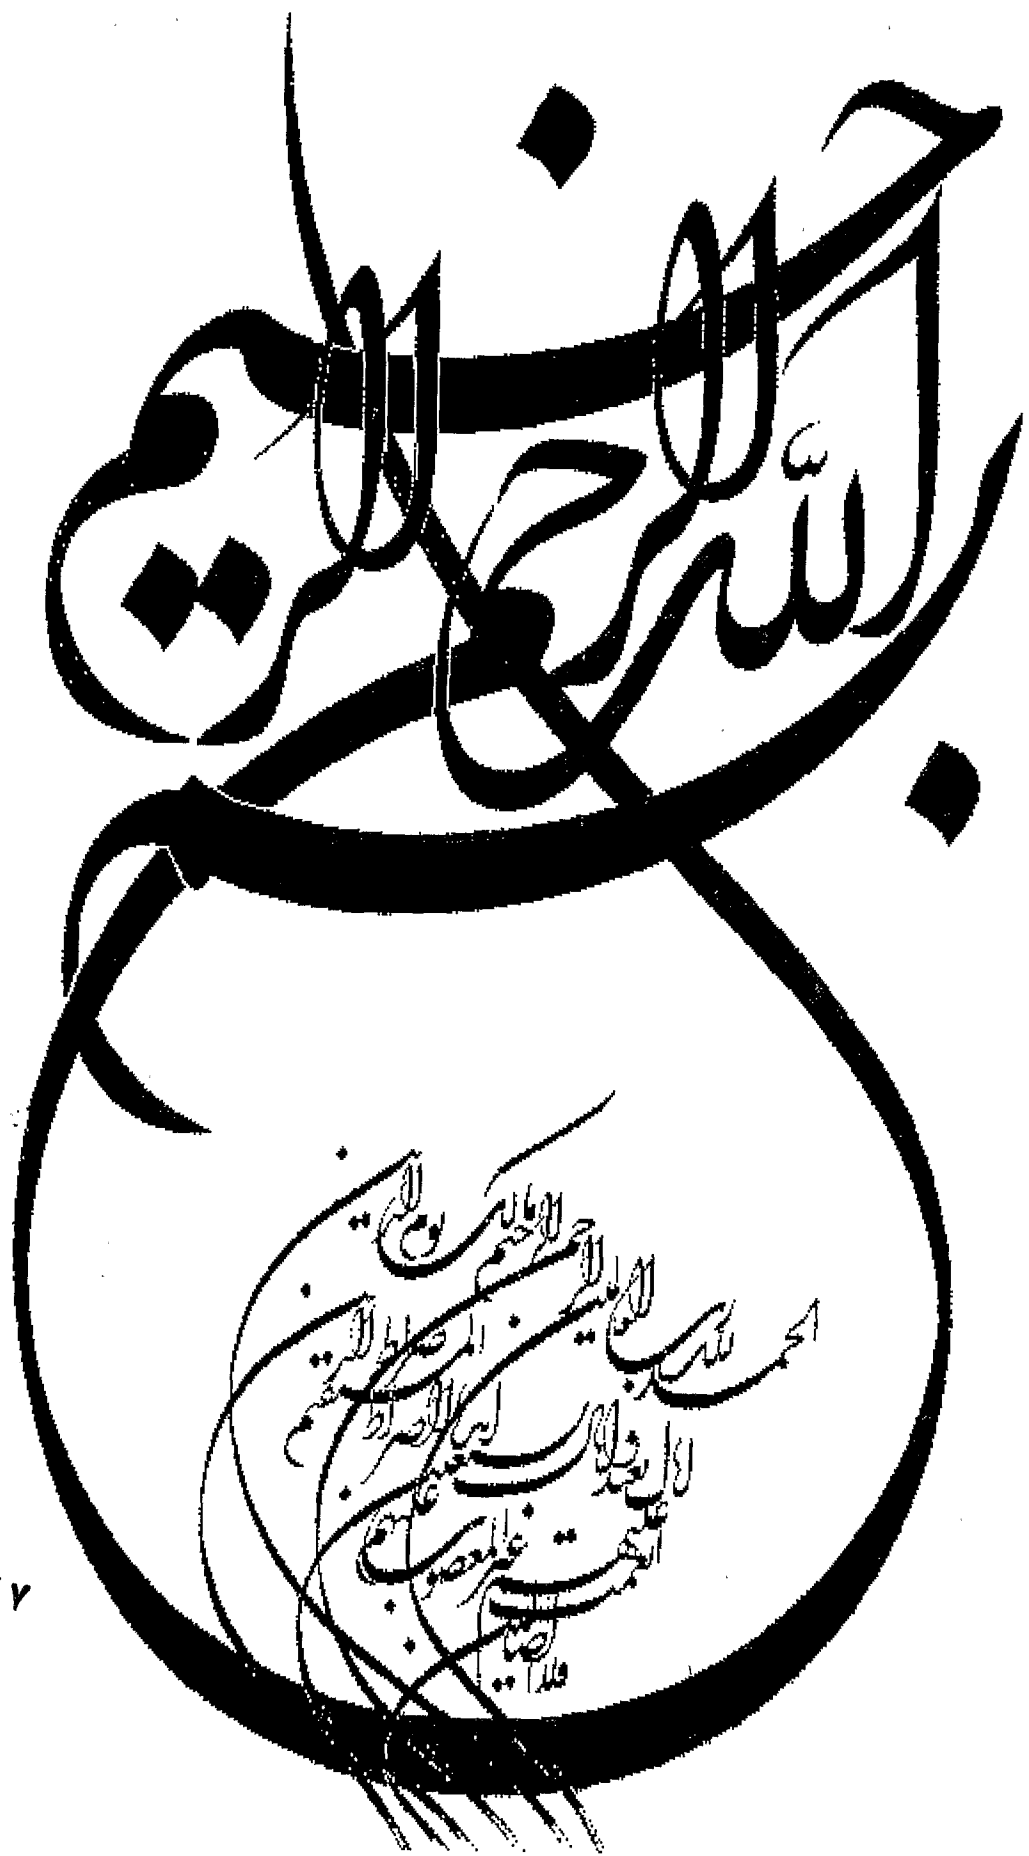 بسم الله الرحمن الرحیم
الحمد لله رب العالمین
الرحمن الرحیم
مالک یوم الدین
ایاک نعبد و ایاک نستعین
اهدنا الصراط المستقیم
صراط الذین انعمت علیهم
غیر المغضوب علیهم
ولا الضالین
۷